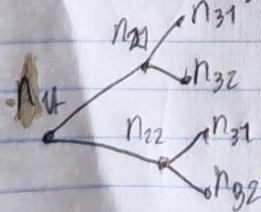 n31
n21
n32
n11
n22
n31
n32